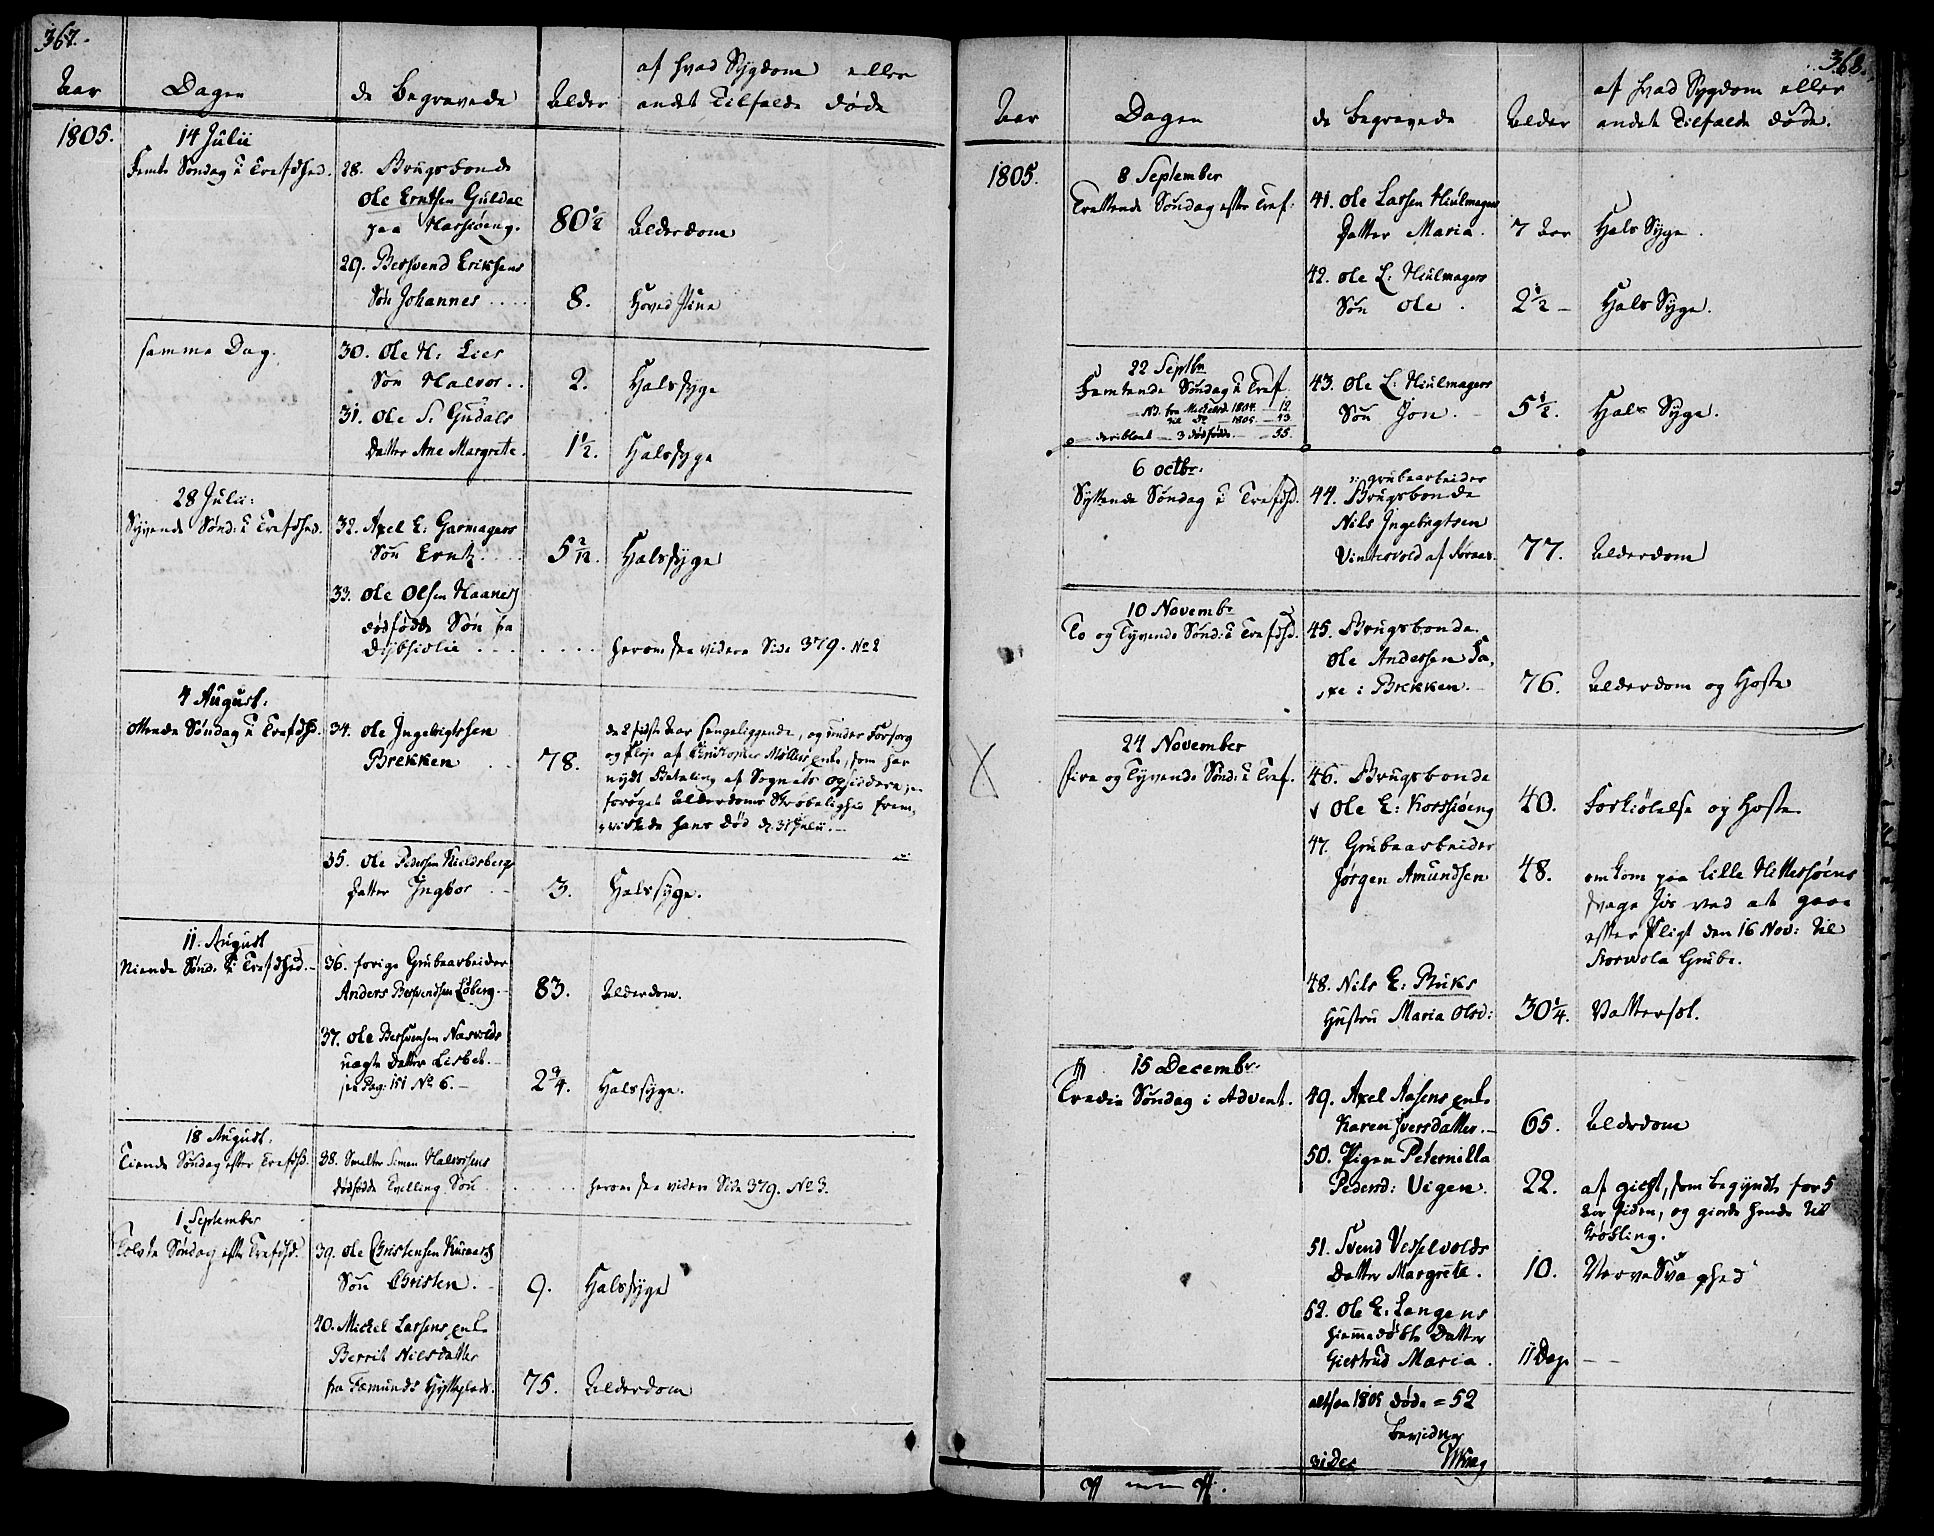 367.
Aar
Dagen
de Begravede
Alder
af hvad Sygdom eller
andet Tilfælde døde
1805.
14 Julii
Femte Søndag e Trefdhed.
28. Brugsbonde
Ole Erntsen Guldal
paa Harsiøeng.
80 1/2
Alderdom
29. Bersvend Eriksens
Søn Johannes ....
8.
Hoved Pine
samme Dag.
30. Ole H: Lies
Søn Halvor ..
2.
Halssyge
31. Ole S: Gudals
Datter Ane Margrete.
1 1/2.
Halssyge
28 Julii:
Syvende Sønd: e Trefdhed.
32. Axel E: Garmagers
Søn Erntz ....
5 2/12.
Halssyge
33. Ole Olsen Haanes
dødfødde Søn fra
Dybsiølie ...
herom sees videre Side 379. No 2
4 August:
Ottende Søndag e Trefdhd.
34. Ole Ingebrigtssen
Brekken
78.
de 2 sidste Aar sengeliggende, og under Forsorg
og Pleje af Christopher Møllers Enke, som har
nydt Betaling af Sognets Opsiddere;
forøget Alderdoms Skrøbelighed frem
virkede hans Død d. 31 Julii.
35. Ole Pedersen Kieldsbergs
Datter Ingbor
3.
Halssyge.
11. August
Niende Sønd: e Trefdhed.
36. forige Grubearbeider
Anders Bersvendsen Løberg.
83.
Alderdom.
37. Ole Bersvensen Narvolds
uægte Datter Lisbet.
see Pag: 151 No 6.
2 3/4.
Halssyge.
18 August.
Tiende Søndag efter Trefdhd.
38. Smelter Simen Halvorsens
dødfødde Tvelling Søn
herom sees videre Side 379. No 3.
1 September
Tolvte Søndag efter Trefdhd.
39. Ole Christensen Kuraas
Søn Christen.
9.
Halssyge
40. Mickel Larsens Enke
Berrit Nilsdatter
fra Fæmunds Hytteplads.
75.
Alderdom
368.
Aar
Dagen
de Begravede
Alder
af hvad Sygdom eller
andet Tilfælde døde.
1805.
8 September
Trettende Søndag efter Tref:
41. Ole Larsen Hiulmagers
Datter Maria.
7 Aar
Hals Syge.
42. Ole L: Hiulmagers
Søn Ole.
2 1/2
Hals Syge.
22 Septbr
Femtende Søndag e Tref.
NB. fra Michaeli 1804. 12
til do 1805. 43
deriblant 3 dødfødde. 55.
43. Ole L: Hiulmagers
Søn Jon.
5 1/2.
Hals Syge.
6 Octbr:
Syttende Søndag e Trefdhd.
grubearbeider
44. Brugsbonde
Nils Ingebrigtsen
Vintervold af Røraas.
77.
Alderdom
10 Novembr
To og Tyvende Sønd: e Trefdhd.
45. Brugsbonde
Ole Andersen Fa,
xe i Brekken.
76.
Alderdom og Hoste
24 November
fire og Tyvende Sønd: e Tref.
46. Brugsbonde
Ole E: Korssiøeng
40.
Forkiølelse og Hoste
47. Grubearbeider
Jørgen Amundsen
48.
omkom paa lille Hittersøens
svage Iis ved at gaae
efter Pligt den 16 Nov: til
Storvola Grube.
48. Nils E: Buks
Hustru Maria Olsd:
30 1/4.
Vattersot.
15 Decembr:
Tredie Søndag i Advent.
49. Axel Aasens Enke
Karen Iversdatter.
65.
Alderdom
50. Pigen Peternilla
Pedersd: Vigen.
22.
af gicht, som begyndte for 5
Aar siden, og giorde hende til
Krøbling.
51. Svend Vesselvolds
Datter Margrete.
10.
NerveSvaghed
52. Ole E: Langens
hiemmedøbte Datter
Giertrud Maria.
11 Dage
altsaa 1805 døde = 52
bevidner